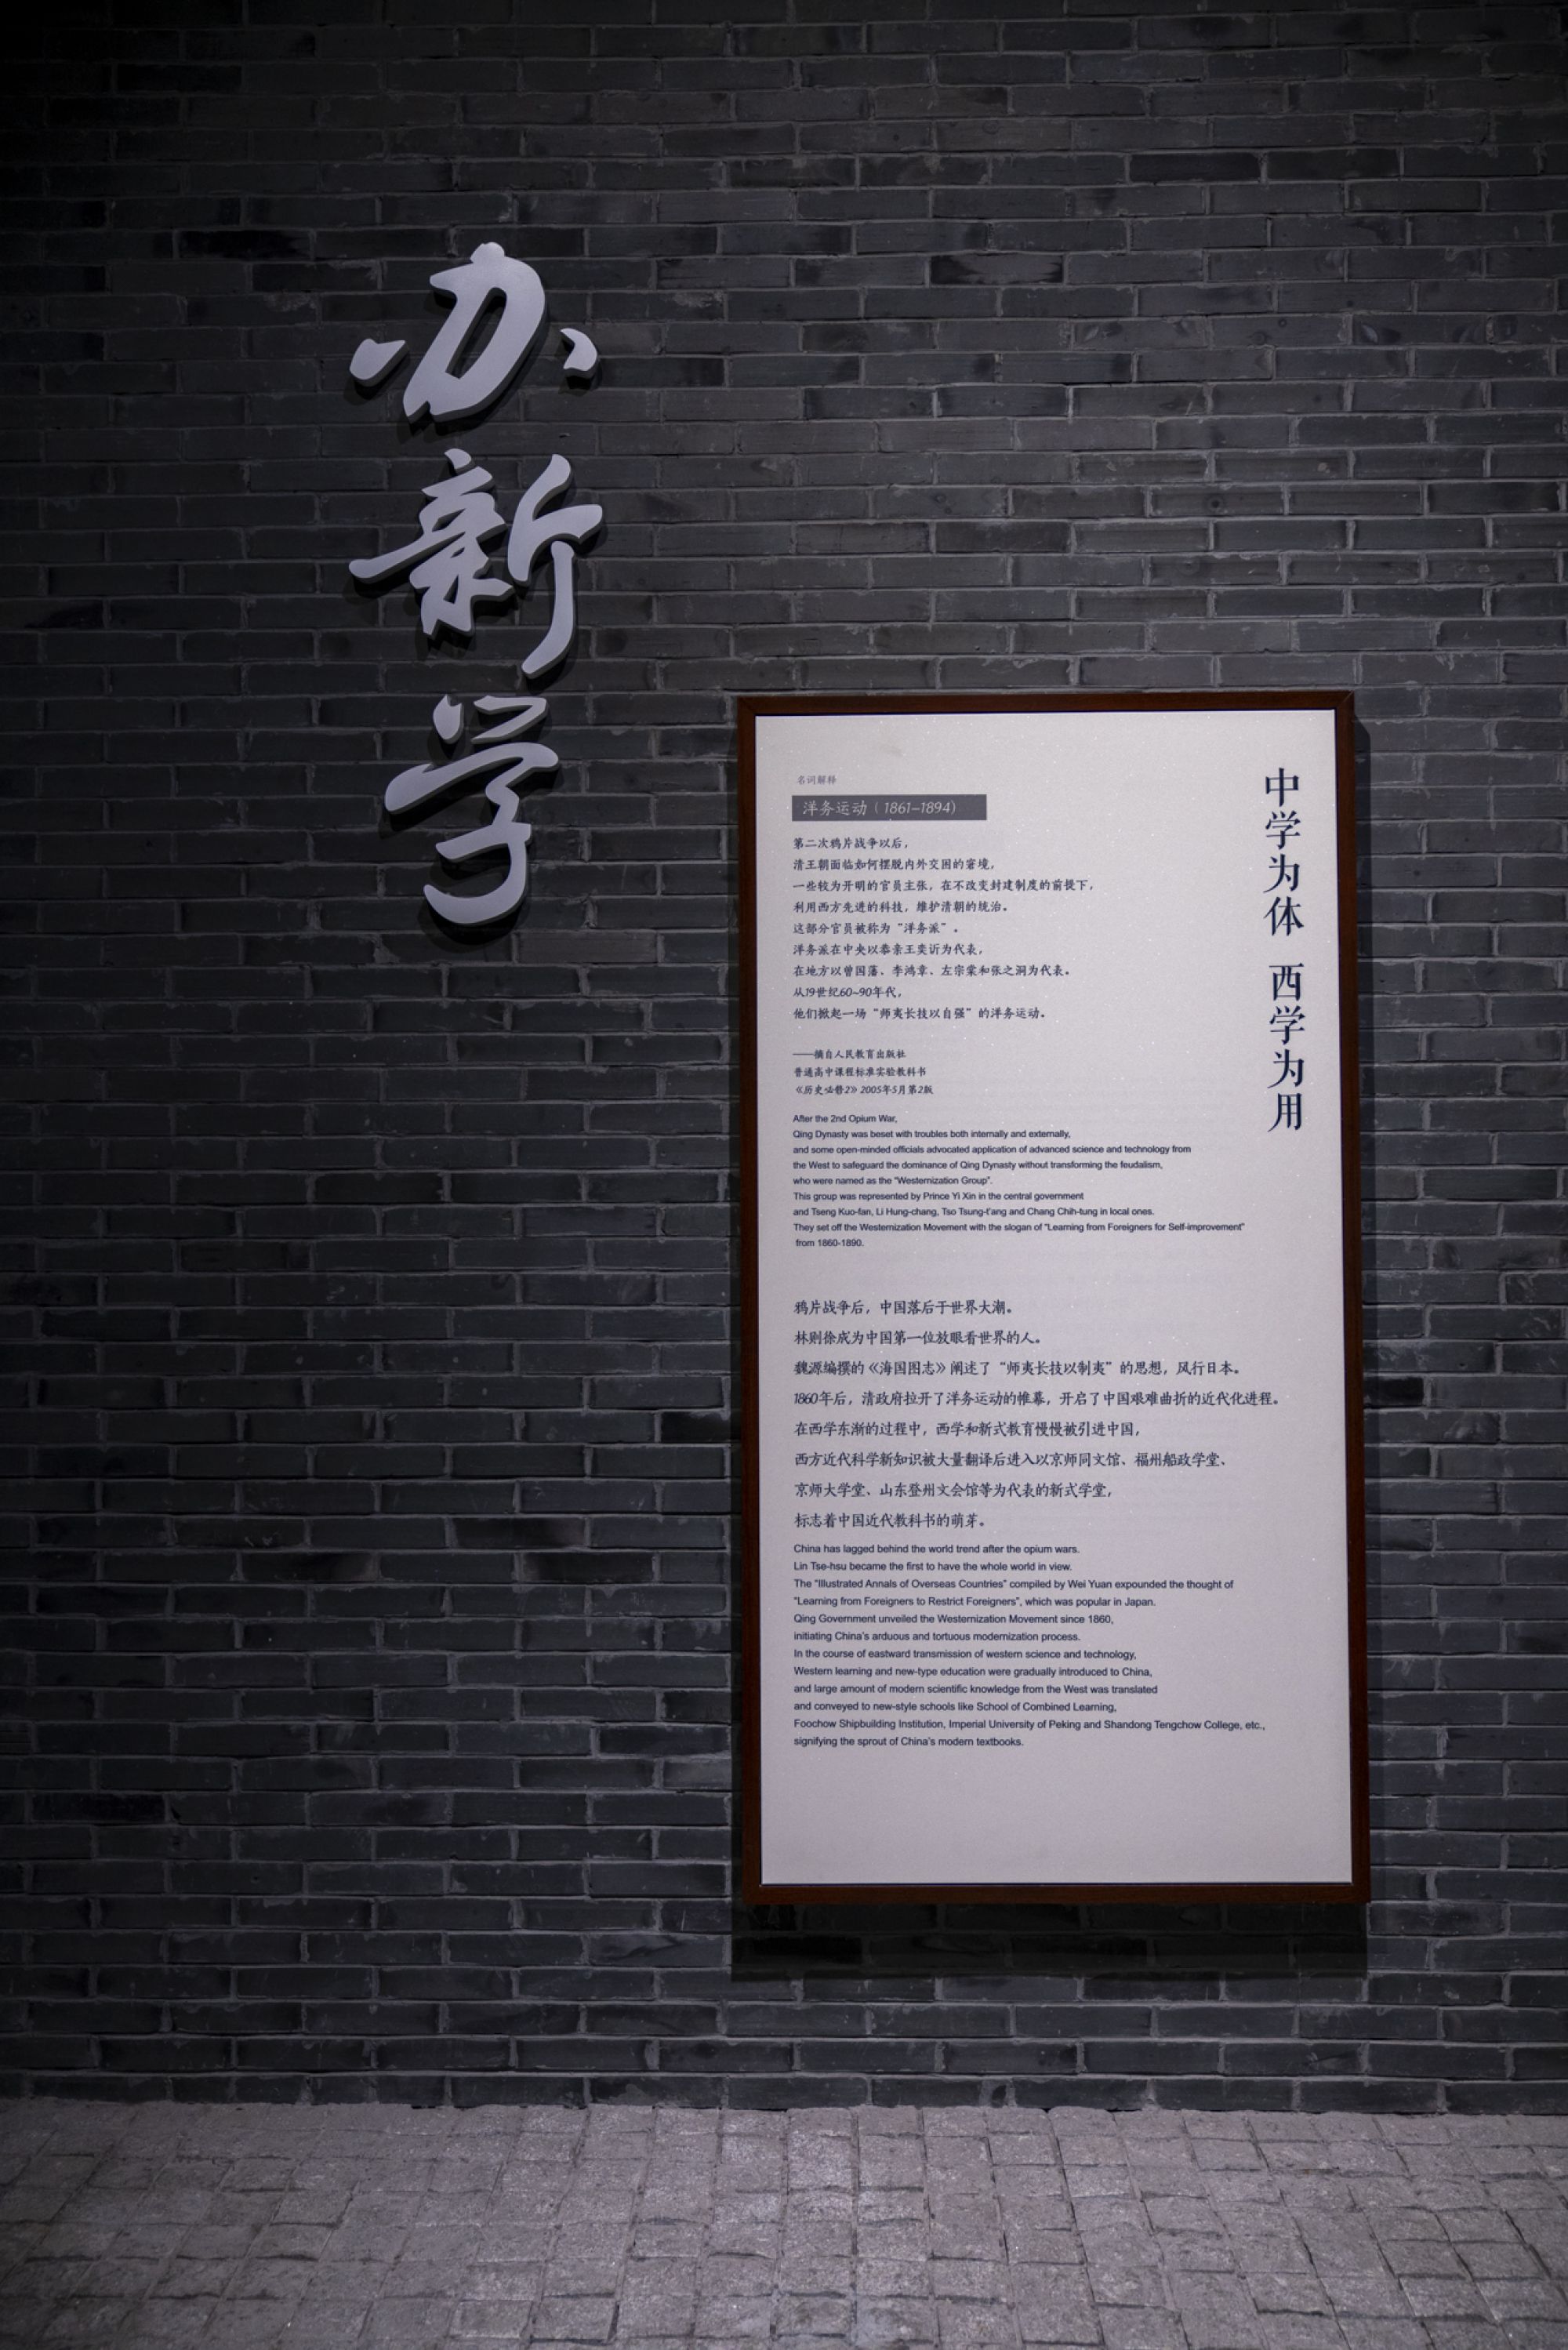 办新学
中学为体 西学为用
名词解释
洋务运动（1861-1894）
第二次鸦片战争以后，
清王朝面临如何摆脱内外交困的窘境，
一些较为开明的官员主张，在不改变封建制度的前提下，
利用西方先进的科技，维护清朝的统治。
这部分官员被称为“洋务派”。
洋务派在中央以恭亲王奕䜣为代表，
在地方以曾国藩、李鸿章、左宗棠和张之洞为代表。
从19世纪60~90年代，
他们掀起一场“师夷长技以自强”的洋务运动。
——摘自人民教育出版社
普通高中课程标准实验教科书
《历史必修2》2005年5月第2版
After the 2nd Opium War,
Qing Dynasty was beset with troubles both internally and externally,
and some open-minded officials advocated application of advanced science and technology from
the West to safeguard the dominance of Qing Dynasty without transforming the feudalism,
who were named as the "Westernization Group".
This group was represented by Prince Yi Xin in the central government
and Tseng Kuo-fan, Li Hung-chang, Tso Tsung-t'ang and Chang Chih-tung in local ones.
They set off the Westernization Movement with the slogan of "Learning from Foreigners for Self-improvement"
from 1860-1890.
鸦片战争后，中国落后于世界大潮。
林则徐成为中国第一位放眼看世界的人。
魏源编撰的《海国图志》阐述了“师夷长技以制夷”的思想，风行日本。
1860年后，清政府拉开了洋务运动的帷幕，开启了中国艰难曲折的近代化进程。
在西学东渐的过程中，西学和新式教育慢慢被引进中国，
西方近代科学新知识被大量翻译后进入以京师同文馆、福州船政学堂、
京师大学堂、山东登州文会馆等为代表的新式学堂，
标志着中国近代教科书的萌芽。
China has lagged behind the world trend after the opium wars.
Lin Tse-hsu became the first to have the whole world in view.
The "Illustrated Annals of Overseas Countries" compiled by Wei Yuan expounded the thought of
"Learning from Foreigners to Restrict Foreigners", which was popular in Japan.
Qing Government unveiled the Westernization Movement since 1860,
initiating China's arduous and tortuous modernization process.
In the course of eastward transmission of western science and technology,
Western learning and new-type education were gradually introduced to China,
and large amount of modern scientific knowledge from the West was translated
and conveyed to new-style schools like School of Combined Learning,
Foochow Shipbuilding Institution, Imperial University of Peking and Shandong Tengchow College, etc.,
signifying the sprout of China's modern textbooks.